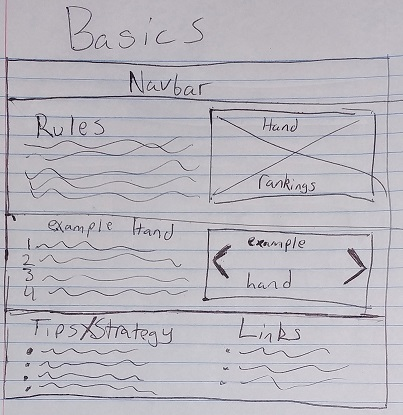 Basics
Navbar
Rules
Hand
rankings
example Hand
1
2
3
4
example
hand
Tips/Strategy
Links